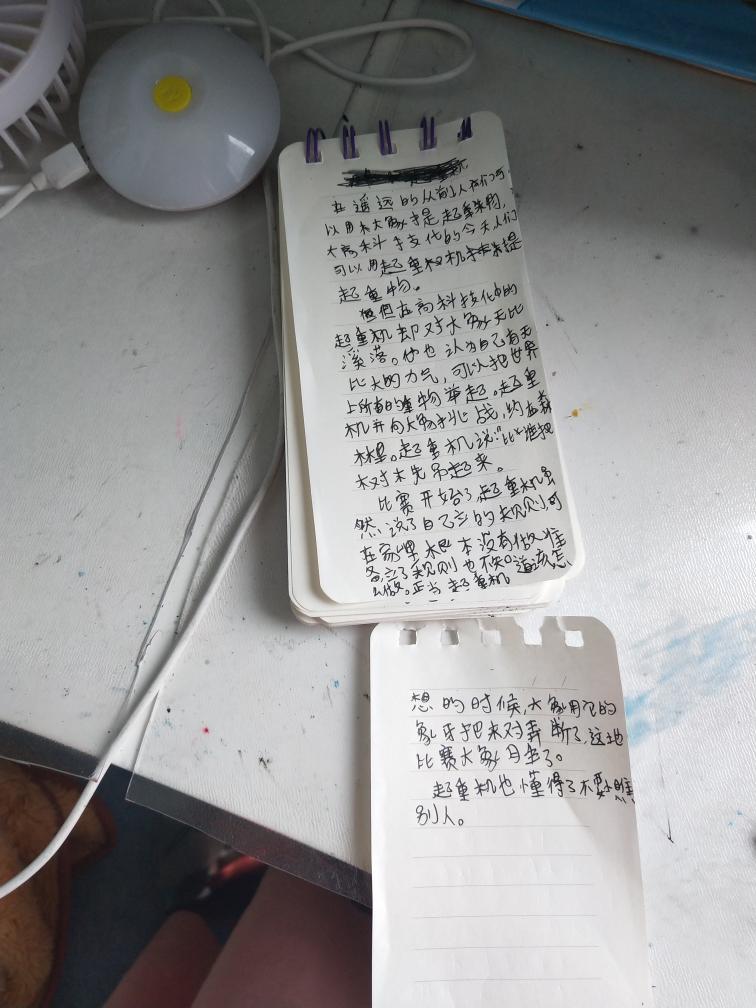 在遥远的从前人我们可
以用木大象才是起重染物,
大高科手支代的今天人们
可以用起重权机才来提
起重物。
但在高科技化中的
起重机却对大象无比
溪落。他也认为自己有无
比大的力气,可以把世界
上所有的重物举起。起重
机并向大象挑战,约在森
林里。起重机说:"比谁把
木对木先吊起来。
比赛开始了,起重机虽
然说了自己立的规则可
在家里根本没有做准
备立了规则也不知道该怎
么做。正当起重机
想的时候,大象用它的
象牙把木对弄断了,这地
比赛大象月生了。
起重机也懂得了不要小瞧
别人。